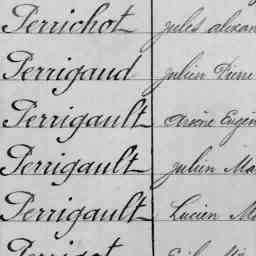 Perrichot Jules Alexan
Perrigaud Julien Pierre
Perrigault Arsène Eugèn
Perrigault Julien Ma
Perrigault Lucien Ma
Perrigot